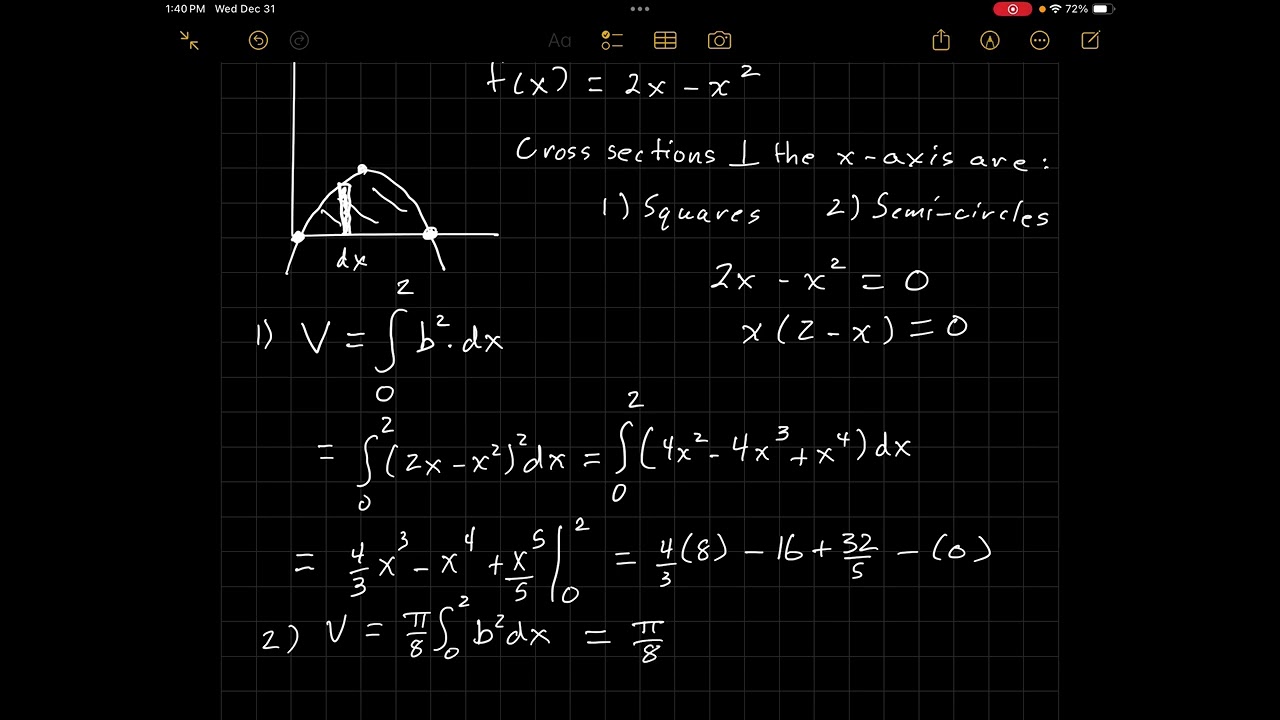 1:40 PM Wed Dec 31
72%
Aa
f(x) = 2x - x²
Cross sections ⊥ the x-axis are:
1) Squares 2) Semi-circles
dx
2x - x² = 0
x(2 - x) = 0
1) V = ∫₀² b² · dx
= ∫₀² (2x - x²)² dx = ∫₀² (4x² - 4x³ + x⁴) dx
= 4/3 x³ - x⁴ + x⁵/5 |₀² = 4/3 (8) - 16 + 32/5 - (0)
2) V = π/8 ∫₀² b² dx = π/8